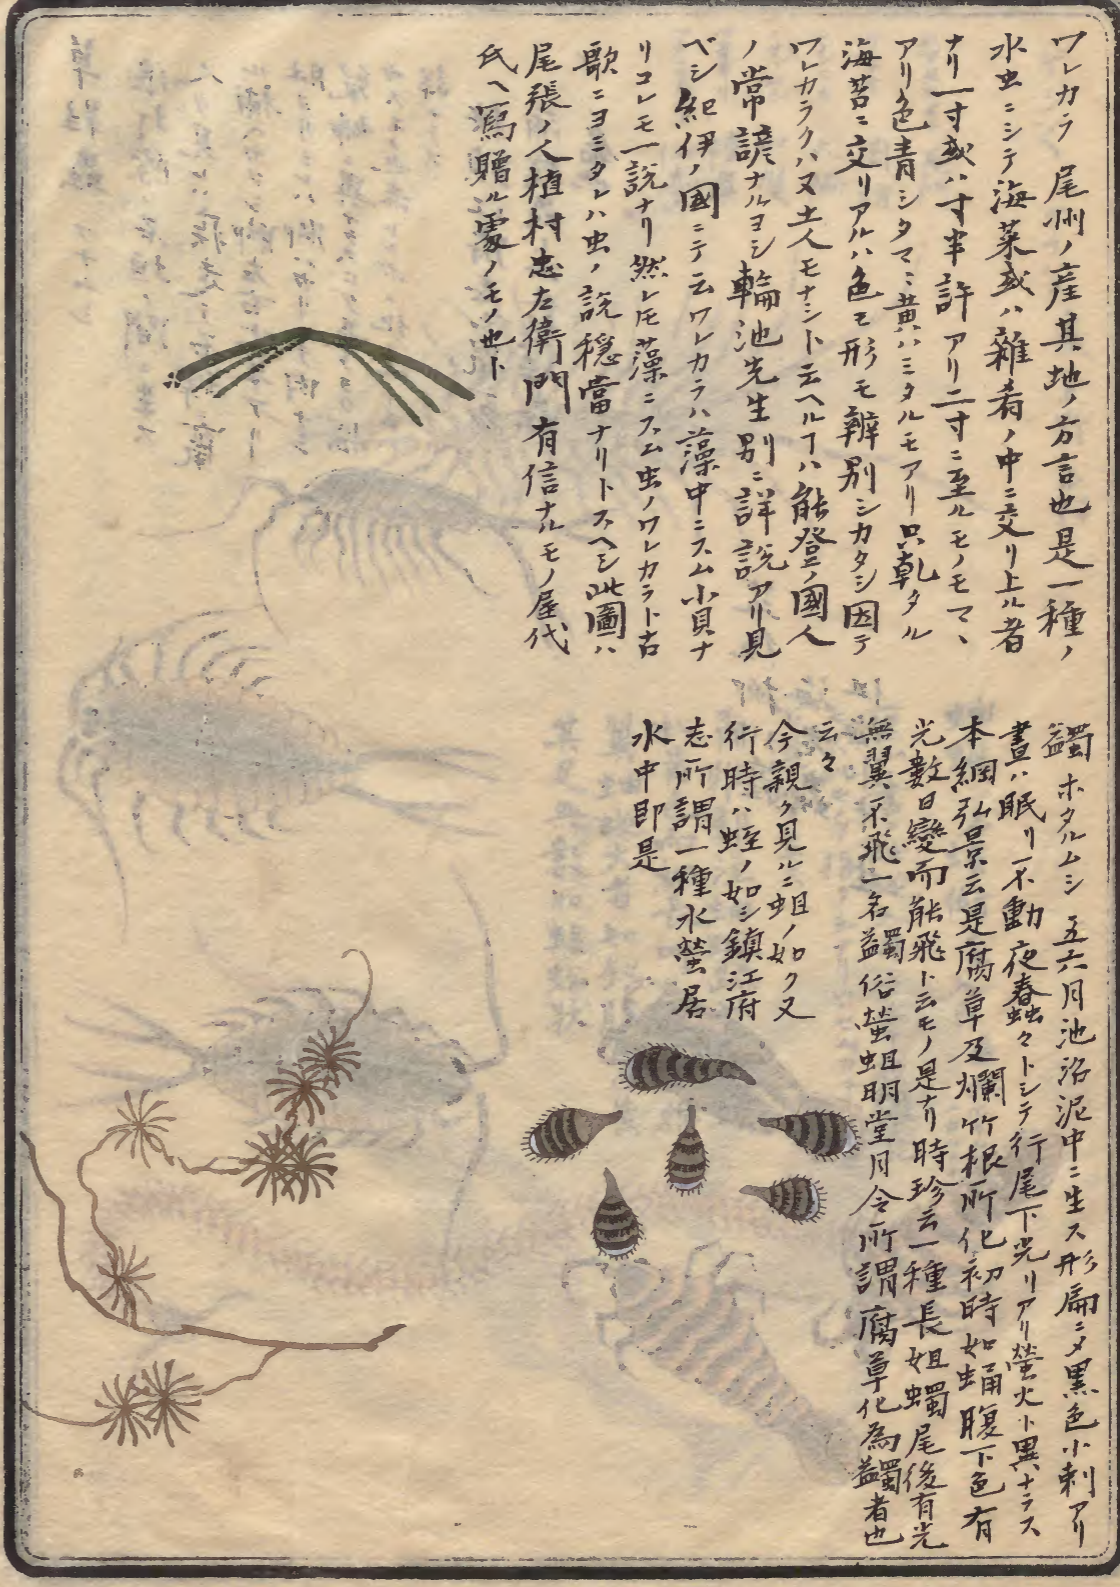 ワレカラ 尾州ノ産其地ノ方言也是一種ノ
水虫ニシテ海菜或ハ雑肴ノ中ニ交リ上ル者
ナリ一寸或ハ寸半許アリ二寸ニ至ルモノモマヽ
アリ色青シタマニ黄ハミタルモアリ只乾タル
海苔ニ交リアルハ色モ形モ辨別シカタシ因テ
ワレカラクハヌ土人モナシト云ヘルヿハ能登ノ國人
ノ常諺ナルヨシ輪池先生別ニ詳説アリ見
ベシ紀伊ノ國ニテ云ワレカラハ藻中ニスム小貝ナ
リコレモ一説ナリ然レ𪜈藻ニスム虫ノワレカラト古
歌ニヨミタレハ虫ノ説穏當ナリトスヘシ此圖ハ
尾張ノ人植村忠左衛門有信ナルモノ屋代
氏ヘ寫贈ル處ノモノ也ト
蠲 ホタルムシ 五六月池沼泥中ニ生ス形扁ニ〆黒色小刺アリ
晝ハ眠リ不動夜蠢々トシテ行尾下光リアリ螢火ト異ナラス
本綱弘景云是腐草及爛竹根所化初時如蛹腹下色有
光數日變而能飛ト云モノ是ナリ時珍云一種長如蛆蠋尾後有光
無翼不飛一名蠲俗螢蛆明堂月令所謂腐草化為蠲者也
云々
今親ク見ルニ蛆ノ如ク又
行時ハ蛭ノ如シ鎮江府
志所謂一種水螢居
水中即是